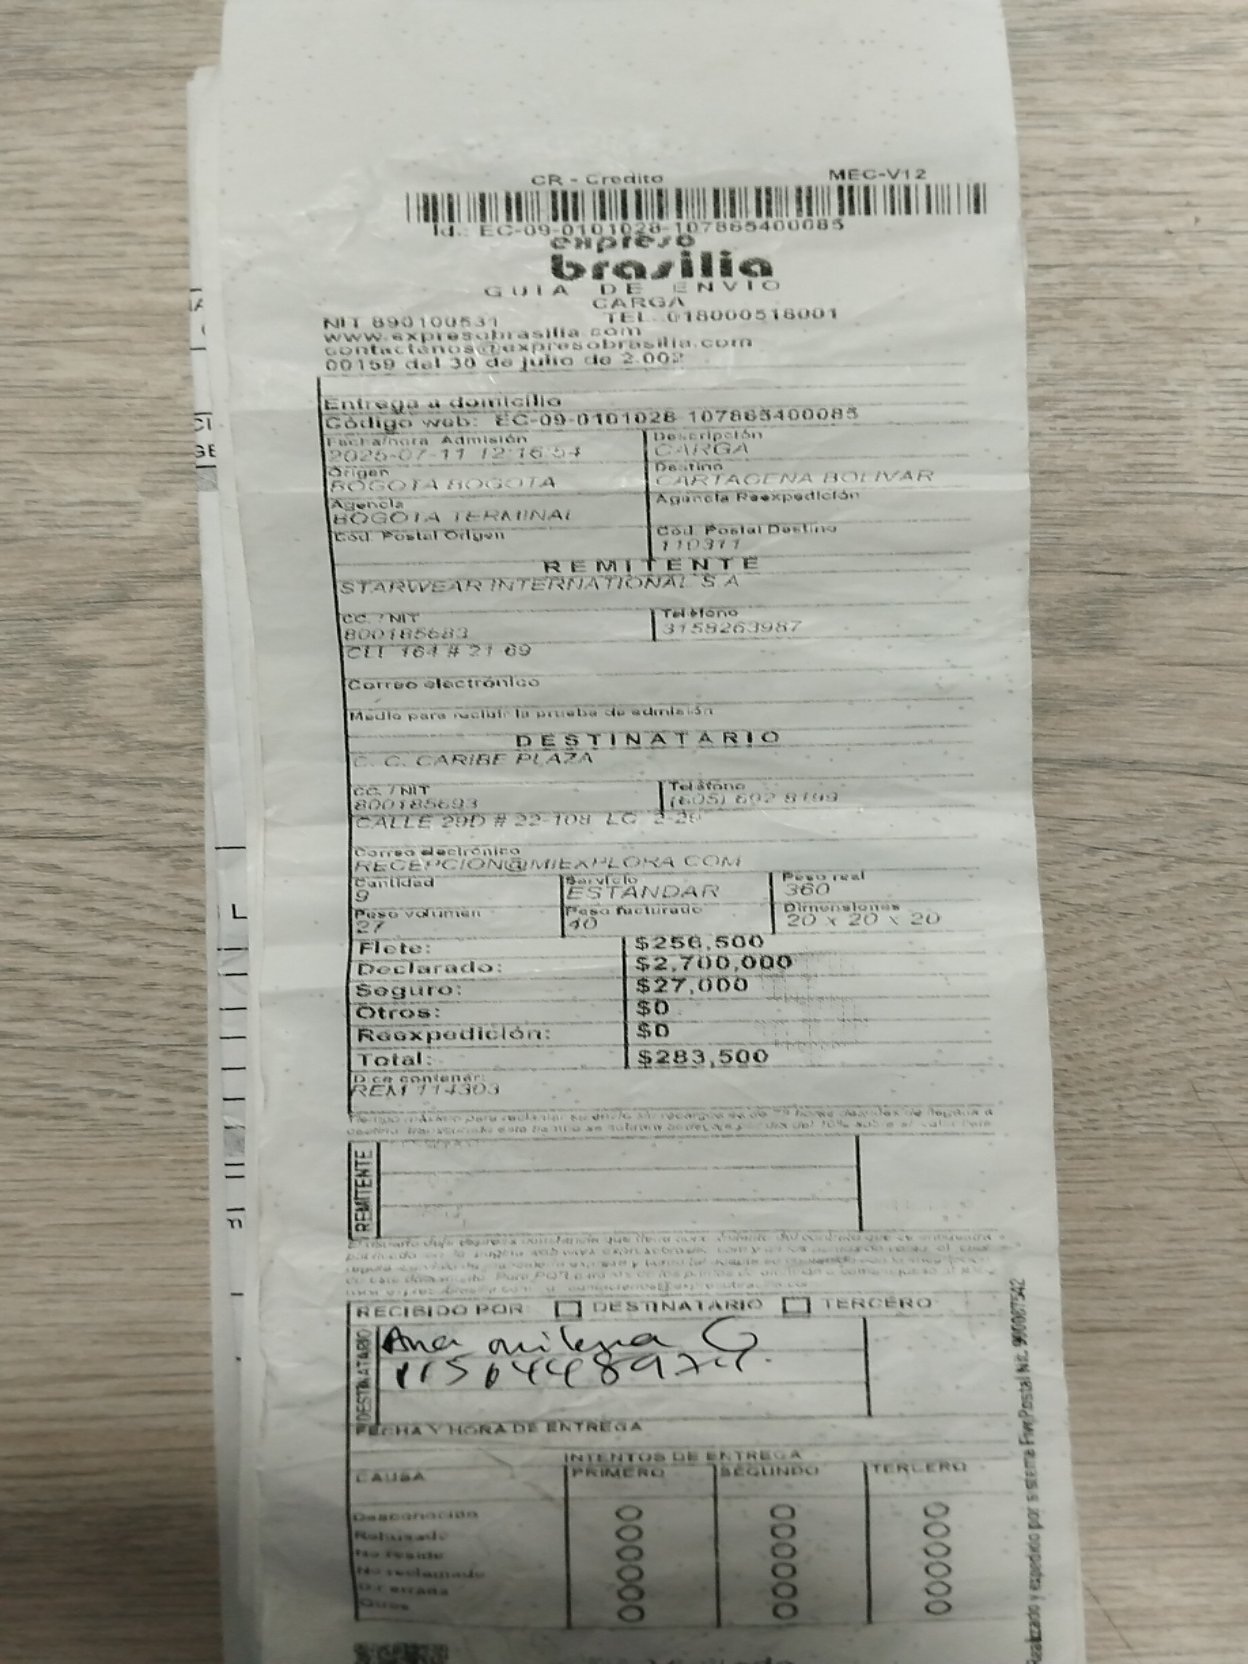 CR - Credito MEC-V12
Id.: EC-09-0101028-107865400085
expreso
brasilia
GUIA DE ENVIO
CARGA
NIT 890100531 TEL. 018000518001
www.expresobrasilia.com
contactenos@expresobrasilia.com
00159 del 30 de julio de 2.002
Entrega a domicilio
Código web: EC-09-0101028-107865400085
Fecha/hora Admisión Descripción
2025-07-11 12:16:54 CARGA
Origen Destino
BOGOTA BOGOTA CARTAGENA BOLIVAR
Agencia Agencia Reexpedición
BOGOTA TERMINAL
Cód. Postal Origen Cód. Postal Destino
110311
REMITENTE
STARWEAR INTERNATIONAL S.A
CC. / NIT Teléfono
800185683 3158263987
CLL 164 # 21 69
Correo electrónico
Medio para recibir la prueba de admisión
DESTINATARIO
C. C. CARIBE PLAZA
CC. / NIT Teléfono
800185693 (605) 692 8199
CALLE 29D # 22-108 LC
Correo electrónico
RECEPCION@MIEXPLORA.COM
Cantidad Servicio Peso real
9 ESTANDAR 360
Peso volumen Peso facturado Dimensiones
27 40 20 x 20 x 20
Flete: $256,500
Declarado: $2,700,000
Seguro: $27,000
Otros: $0
Reexpedición: $0
Total: $283,500
Dice contener:
REM 114303
REMITENTE
RECIBIDO POR: DESTINATARIO TERCERO
DESTINATARIO
Ana milena G
FECHA Y HORA DE ENTREGA
INTENTOS DE ENTREGA
CAUSA PRIMERO SEGUNDO TERCERO
Desconocido
Rehusado
No reside
No reclamado
Dir errada
Otros
Realizado y expedido por sistema FivePostal Nit. 900087542